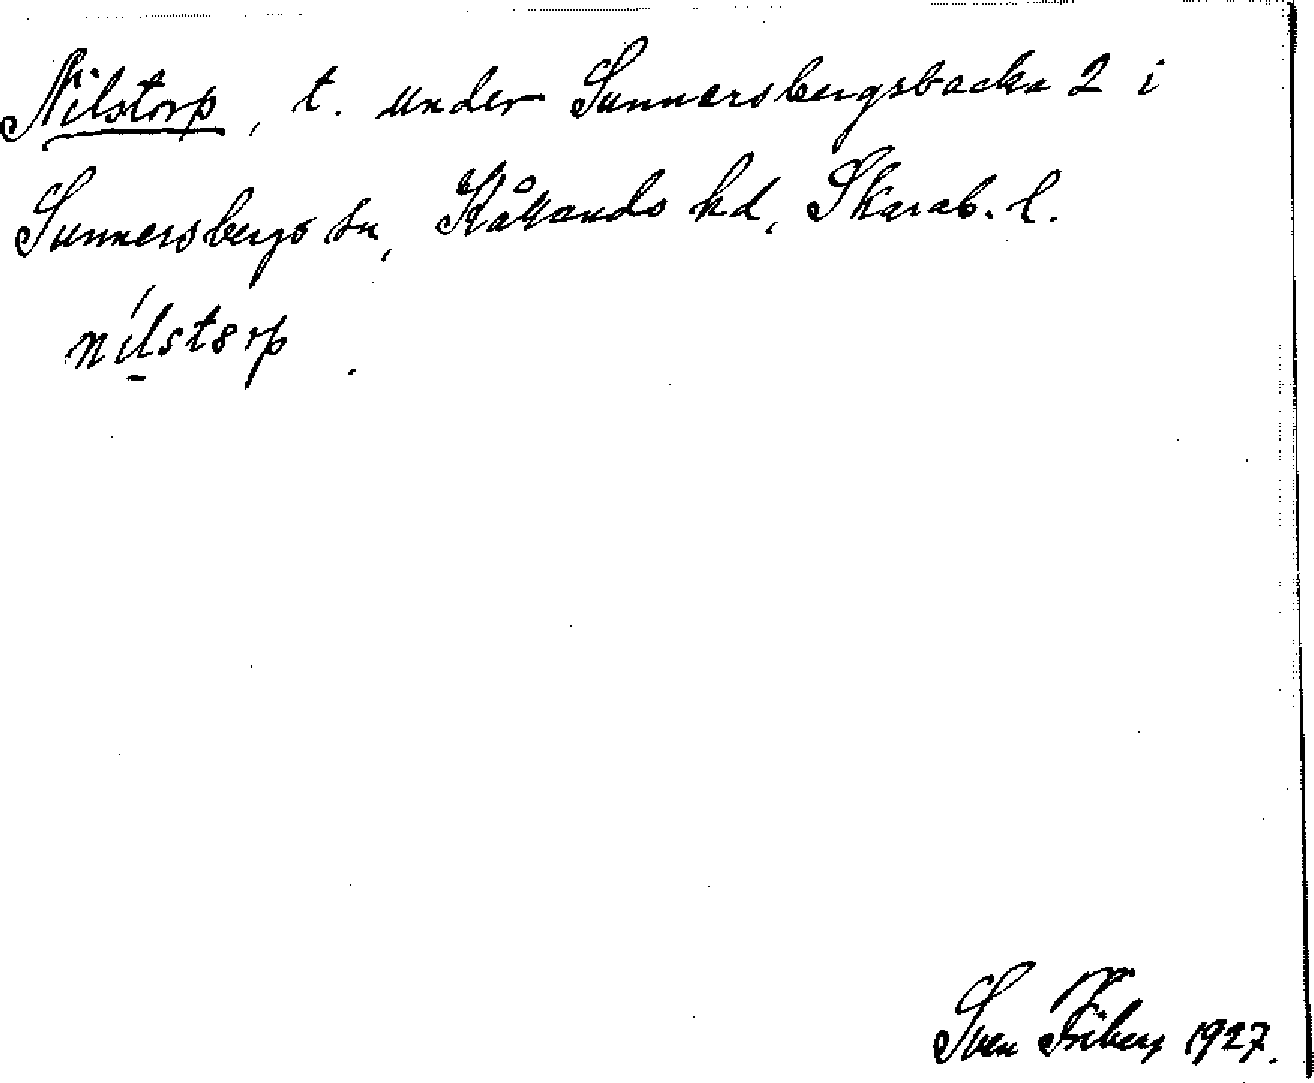 Nilstorp, t. under Sunnersbergsbacka 2 i
Sunnersbergs sn, Kållands hd, Skarab. l.
nílstorp.
Sven Friberg 1927.